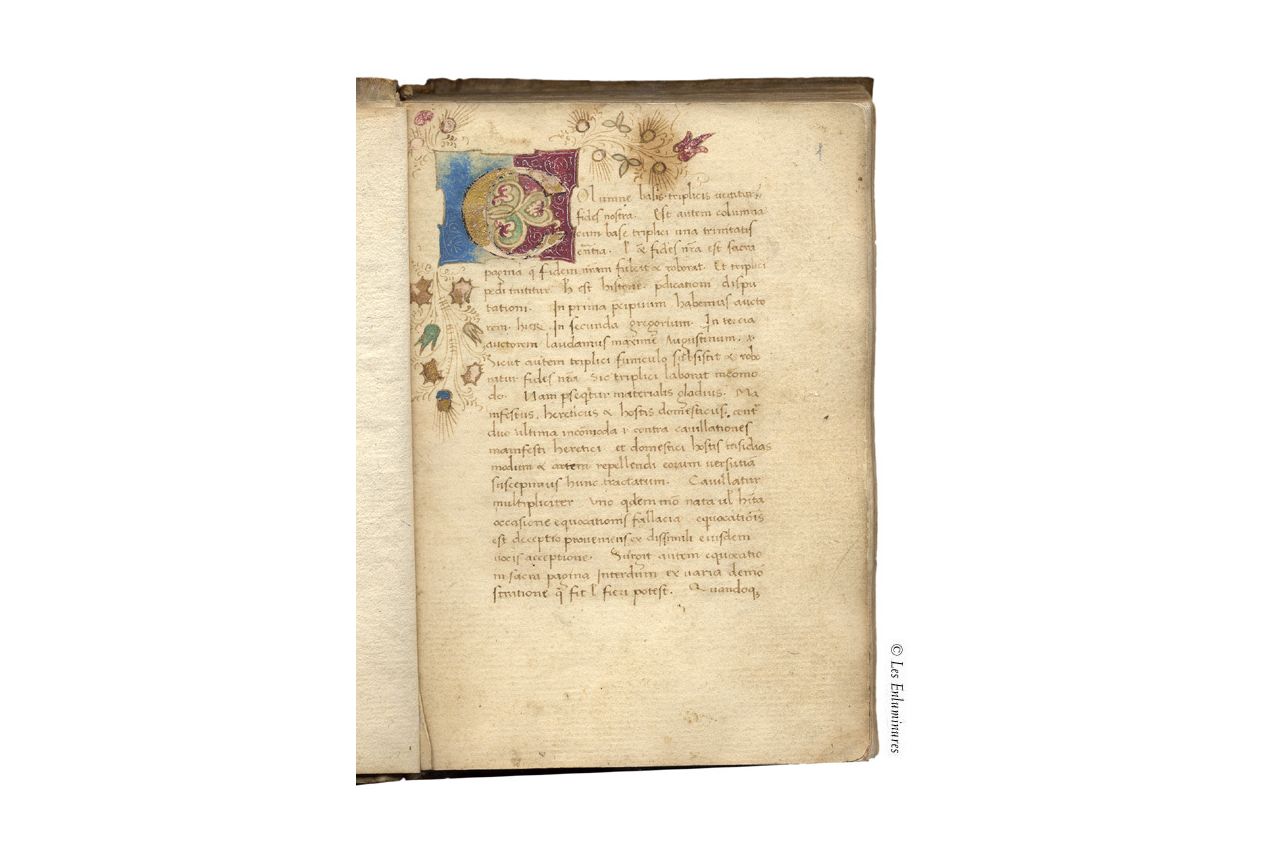 Columne basis triplicis innititur
fides nostra. Est autem columna
cum base triplici una trinitatis
eſſentia. ł & fides nr̄a est sacra
pagina q̄ fidem nram fulcit & roborat. Et triplici
pedi innititur. h̄ est historie p̄dicationi dispu
tationi. In prima p̄cipuum habemus aucto
rem. hier̄. In secunda gregorium. In tercia
auctorem laudamus maximū Augustinum.
Sicut autem triplici funiculo subsistit & robo
ratur fides nr̄a sic triplici laborat incōmo
do. Nam pseq̄tur materialis gladius. Ma
nifestus, hereticus & hostis domesticus. contͬ
duo ultima incōmoda & contra cauillationes
manifesti heretici et domestici hostis insidias
modum & artem repellendi eorum uersutiā
suscepimus hunc tractatum. Cauillatur
multipliciter Vno qdem mō nata ul̄ hita
occasione equocationis fallacia equocatiōis
est deceptio proueniens ex dissimili eiusdem
uocis acceptione. Surgit autem equocatio
in sacra pagina interdum ex uaria demō
stratione q̄ fit ł fieri potest. Quandoq;
1
© Les Enluminures